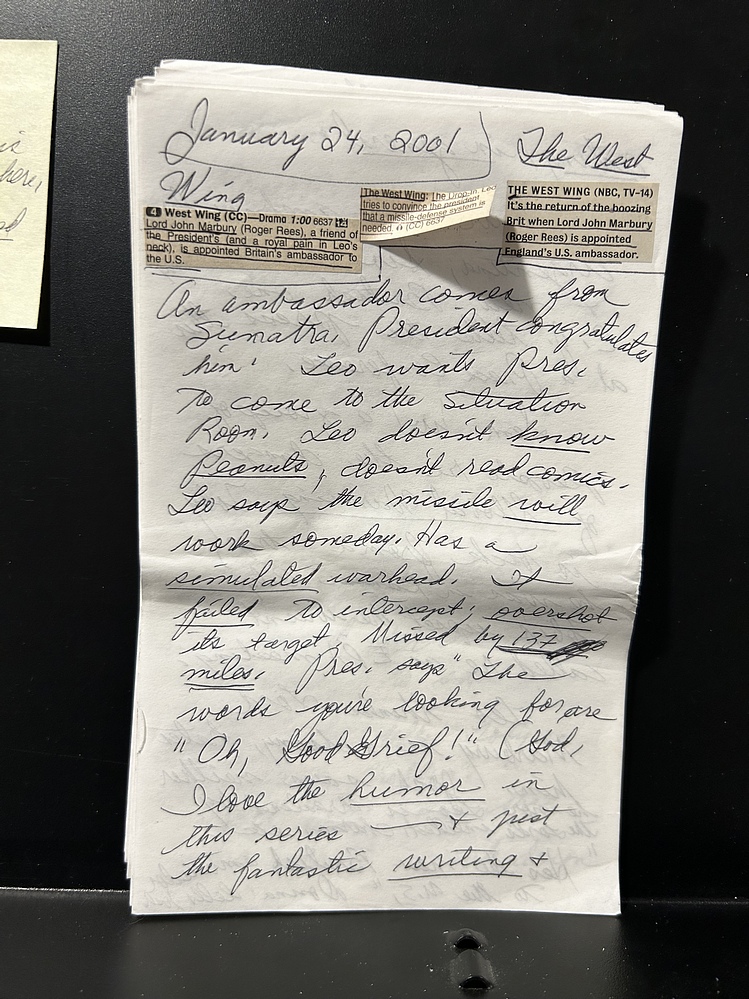 is
here,
January 24, 2001 The West
Wing
4 West Wing (CC)—Drama 1:00 6637
Lord John Marbury (Roger Rees), a friend of
the President's (and a royal pain in Leo's
neck), is appointed Britain's ambassador to
the U.S.
The West Wing: The Drop-In. Leo
tries to convince the president
that a missile-defense system is
needed. (CC) 6637
THE WEST WING (NBC, TV-14)
It's the return of the boozing
Brit when Lord John Marbury
(Roger Rees) is appointed
England's U.S. ambassador.
An ambassador comes from
Sumatra. President congratulates
him. Leo wants Pres.
to come to the Situation
Room. Leo doesn't know
Peanuts, doesn't read comics.
Leo says the missile will
work someday. Has a
simulated warhead. It
failed to intercept; overshot
its target. Missed by 137
miles. Pres. says "The
words you're looking for are
"Oh, Good Grief!" (God,
I love the humor in
this series — + just
the fantastic writing +